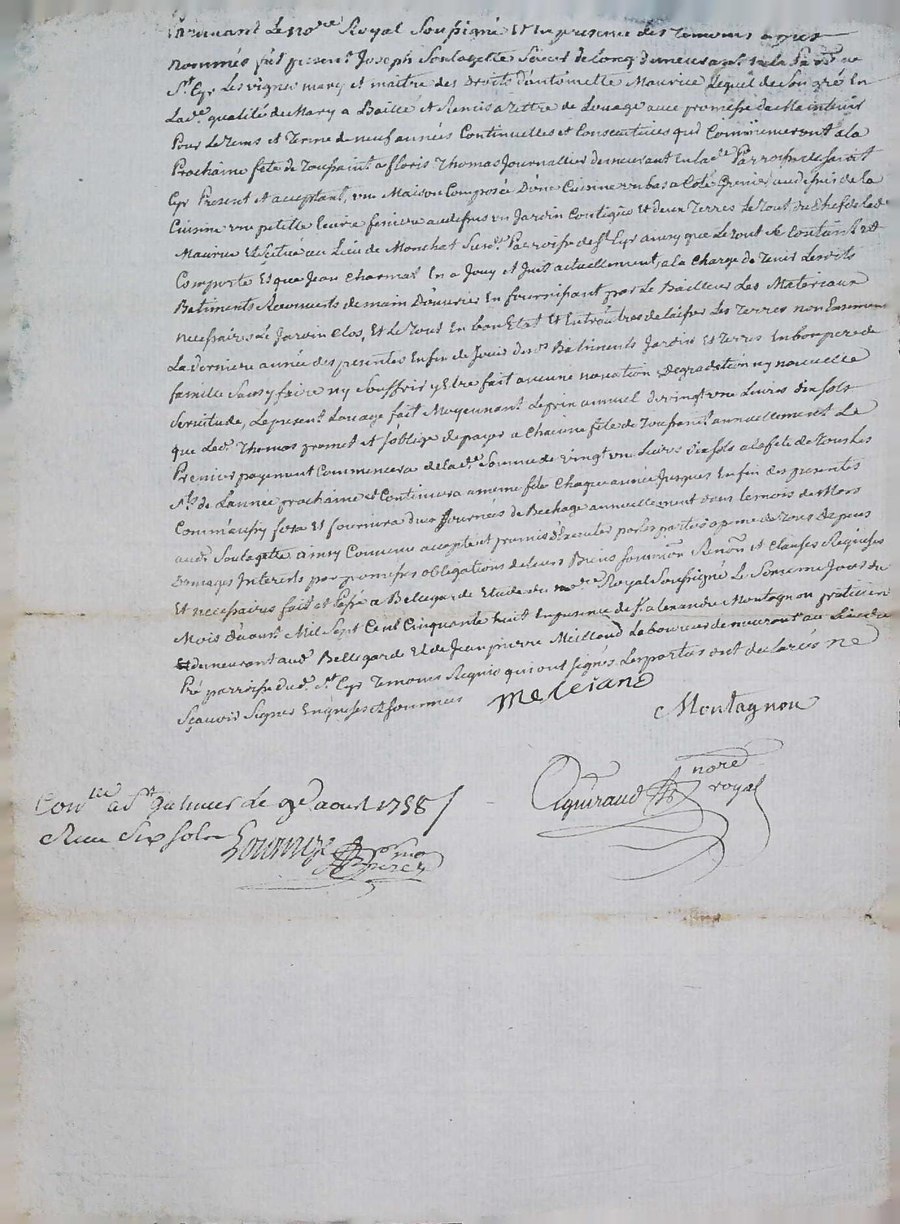 Pardevant Le no.re Royal Soussigné et En presence des Temoins apres
nommés fut present Joseph Soulagette Sieur de Long demeurant en la Parr.se
St. Cyr Les vignes mary et maitre des Droits d'antoinette Maurice Lequel de Son gré En
Lad.e qualité de Mary a Baillé et Remis a tittre de Louage avec promesse de Maintenir
Pour Le tems et Terme de neuf années Continuelles et Consecutives qui Commenceront a la
Prochaine fete de Toussaint a floris Thomas Journallier demeurant En lad.e Parroisse de Saint
Cyr Present et acceptant, une Maison Composée D'une Cuisine en bas a Coté Grenier au dessus de la
Cuisine une petitte Cuire feniere au dessus un Jardin Contigue Et deux Terres Le tout du Chef de lad.e
Maurice Et Scitué au Lieu de Monchat Susd.e Parroisse de St. Cyr ainsy que Le tout Se Contient et
Comporte Et que Jean Charmat En a Jouy et Jouit actuellement, a la Charge de Tenir Lesdits
Batiments Recouverts de main D'ouvrier En fournissant par Le Bailleur Les Materiaux
necessaires Le Jardin Clos, Et Le Tout En bon Etat Et Entr'autres de laisser Les Terres non Ensemencées
La derniere année des presentes Enfin de Jouir desd.s Batiments Jardin Et Terres En bon pere de
famille Sans y faire ny Souffrir y Etre fait aucune novation Degradation ny nouvelle
Servitude, Le present Louage fait Moyennant Le prix annuel de vingt une Livres dix sols
que Led.t Thomas promet et s'oblige de payer a Chacune fete de Toussaint annuellement Le
Premier payement Commencera de lad.e Somme de vingt une Livres dix sols a la fete de Tous Les
Sts. de L'annee prochaine et Continuera a meme fete Chaque année Jusques En fin des presentes
Comm'aussy fera Et fournira deux Journees de Bechage annuellement dans le mois de Mars
aud.t Soulagette ainsy Convenu accepté et promis d'Executer par les parties a peine de Tous Depens
Domages Interets par promesses obligations de leurs Biens Soumission Renon et Clauses Requises
Et necessaires fait et Passé a Bellegarde Etude du no.re Royal Soussigné Le Jour du
Mois D'aout Mil Sept Cent Cinquante huit En presence de Sr. alexandre Montagnon praticien
demeurant aud.t Bellegarde Et de Jean pierre Meilland Laboureur demeurant au Lieu de
Pré parroisse dud.t St. Cyr Temoins Requis qui ont signés Les parties ont declarés ne
Sçavoir Signer Enquises Et Sommees
meleiand
Montagnon
Aguiraud
nore royal
Con.lle a St. Galmier Le 9e aout 1758
Receu Six Sols